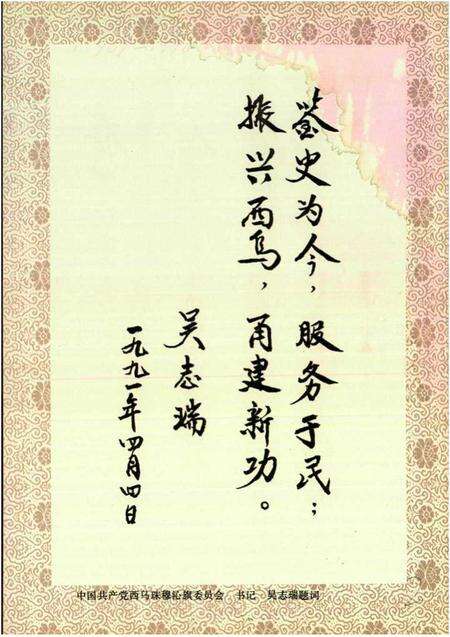 鉴史为今，服务于民；
振兴西乌，再建新功。
吴志瑞
一九九一年四月四日
中国共产党西乌珠穆沁旗委员会 书记 吴志瑞题词